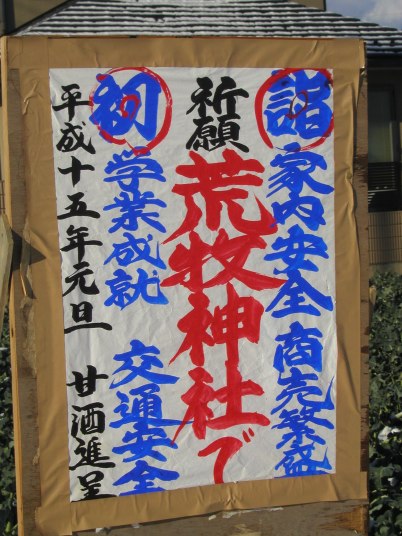 詣 家内安全 商売繁盛
祈願 荒牧神社で
初 学業成就 交通安全
平成十五年元旦 甘酒進呈